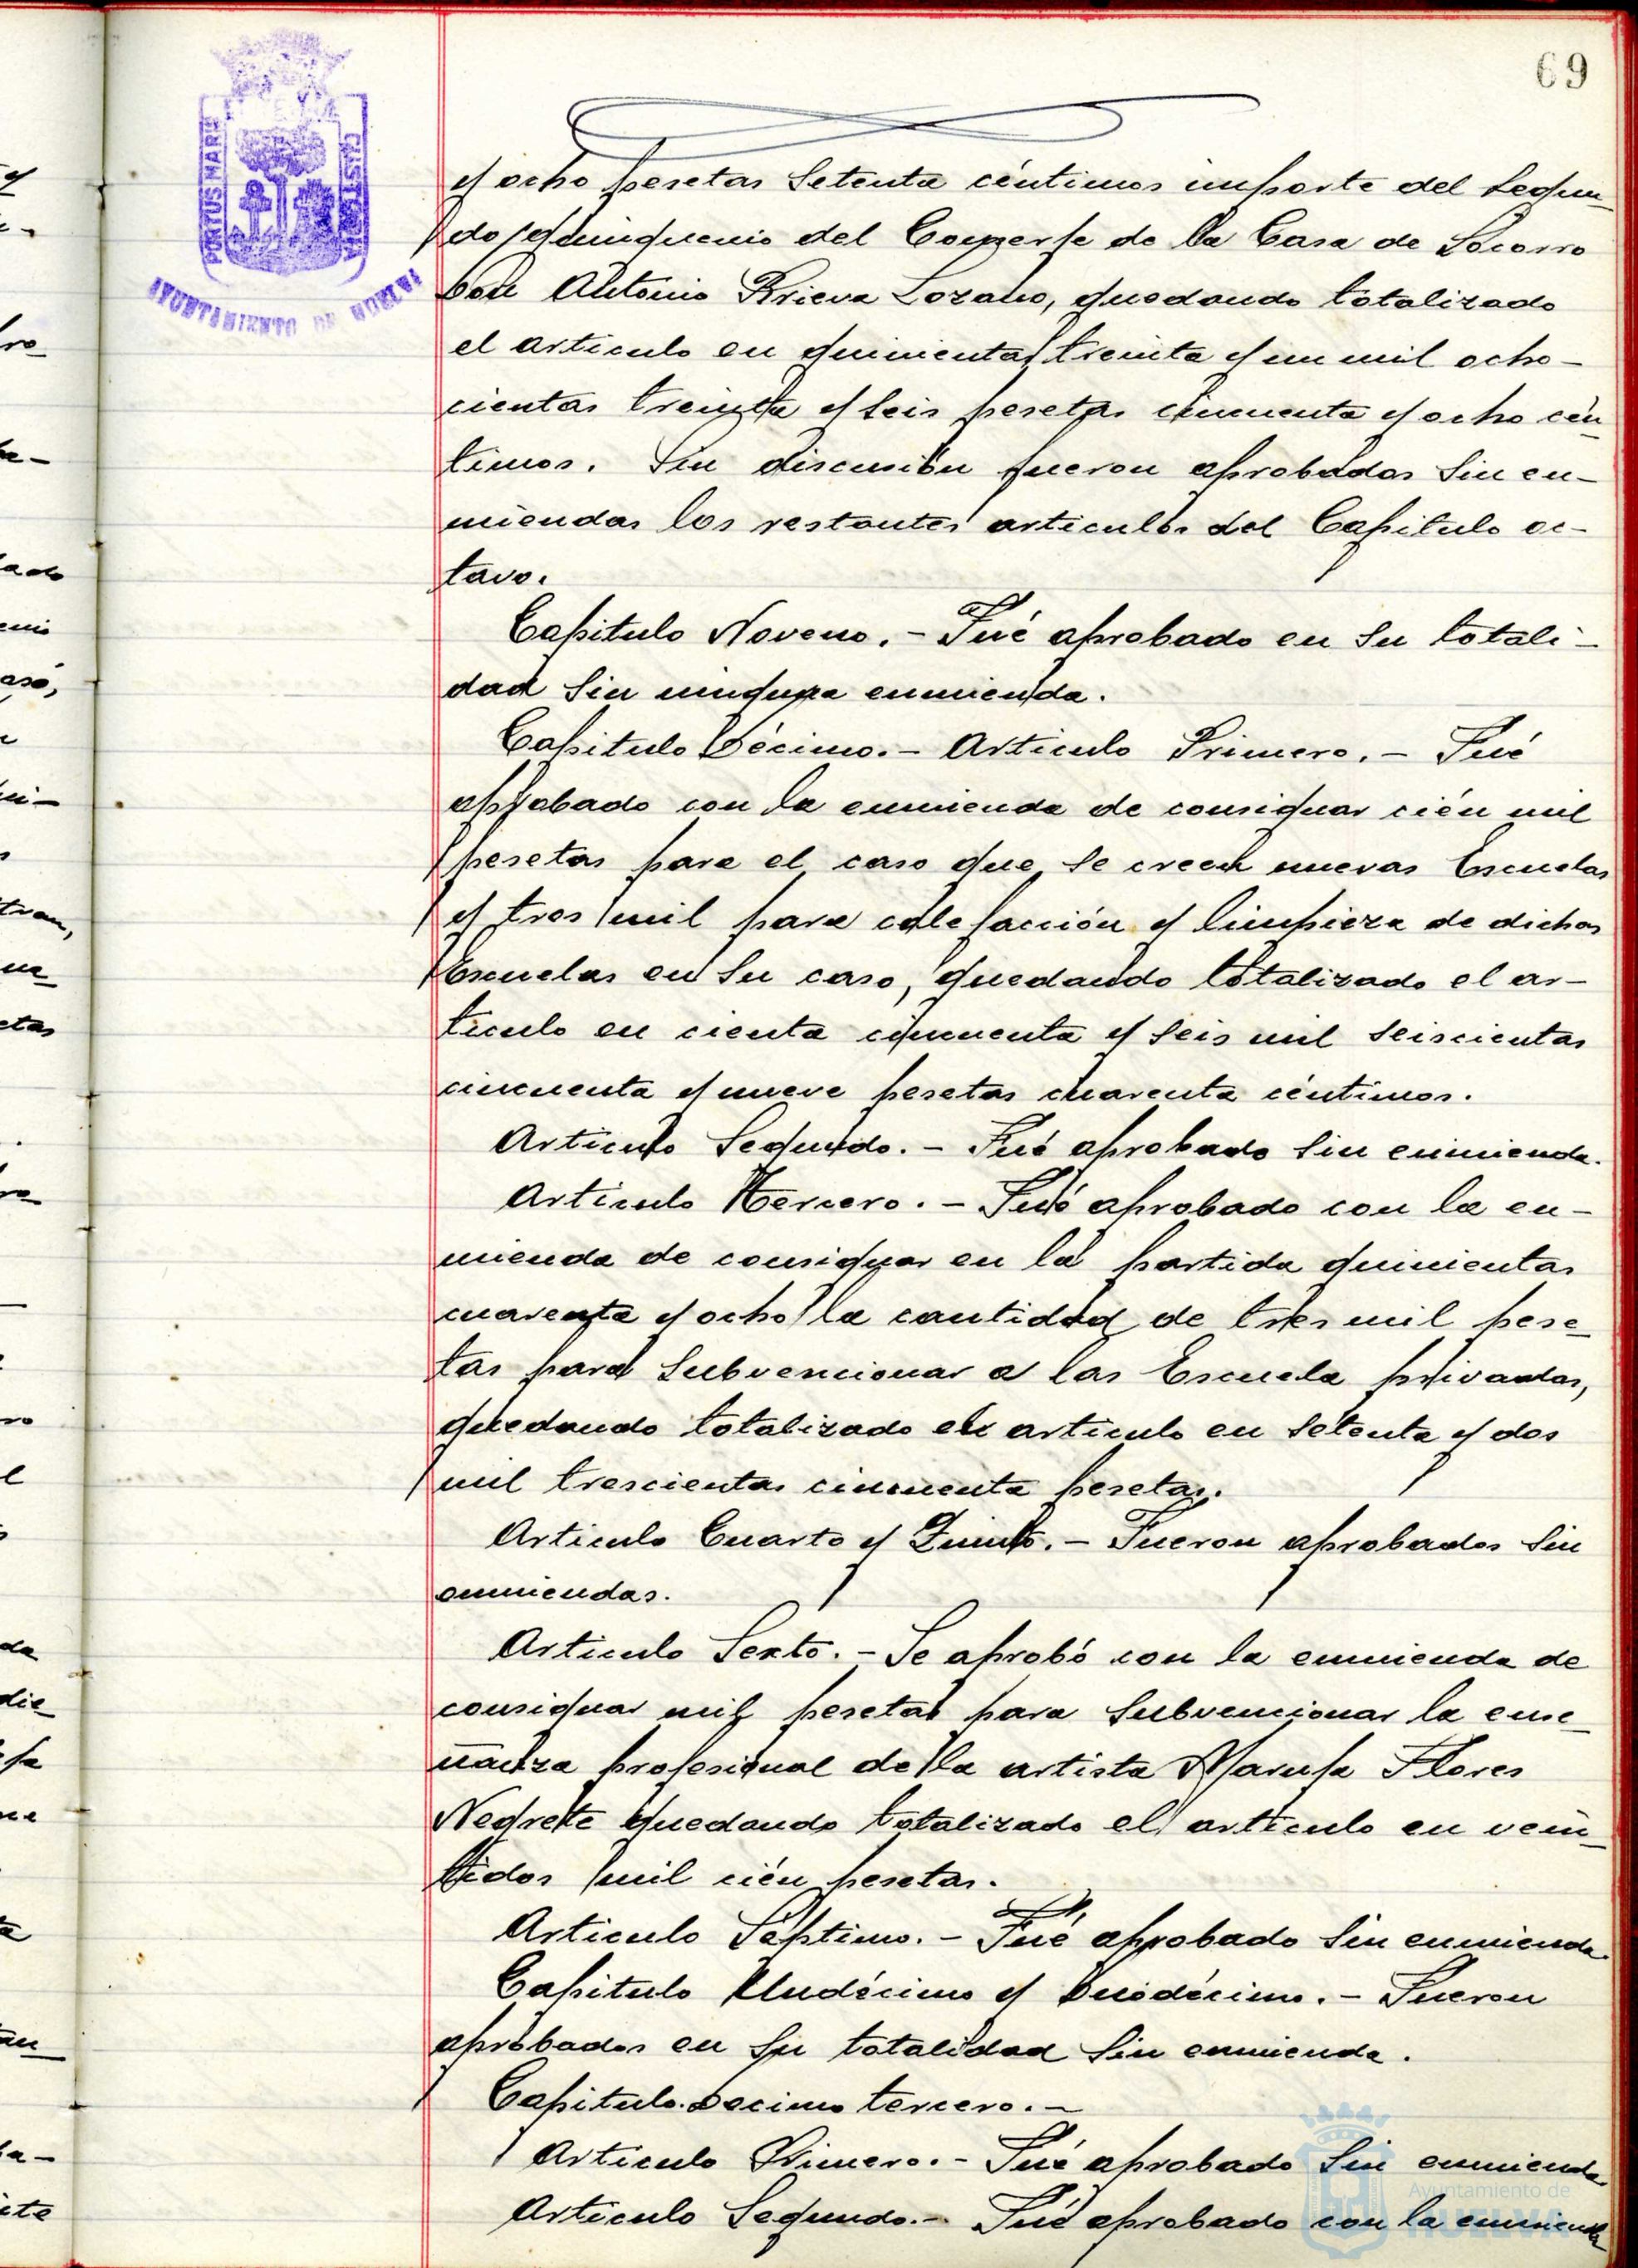 69
PORTUS MARIS
CUSTODIA
AYUNTAMIENTO DE HUELVA
y ocho pesetas setenta céntimos importe del segun-
do quinquenio del Conserje de la Casa de Socorro
Don Antonio Brieva Lozano, quedando totalizado
el articulo en quinientas treinta y un mil ocho-
cientas treinta y seis pesetas cincuenta y ocho cén
timos. Sin discusión fueron aprobados sin en-
miendas los restantes articulos del Capitulo oc-
tavo.
Capitulo Noveno.- Fué aprobado en su totali-
dad sin ninguna enmienda.
Capitulo Décimo.- Articulo Primero.- Fué
aprobado con la enmienda de consignar cién mil
pesetas para el caso que se creen nuevas Escuelas
y tres mil para calefacción y limpieza de dichas
Escuelas en su caso, quedando totalizado el ar-
ticulo en cienta cincuenta y seis mil seiscientas
cincuenta y nueve pesetas cuarenta céntimos.
Articulo Segundo.- Fué aprobado sin enmienda.
Articulo Tercero.- Fué aprobado con la en-
mienda de consignar en la partida quinientas
cuarenta y ocho la cantidad de tres mil pese-
tas para subvencionar a las Escuela privadas,
quedando totalizado el articulo en setenta y dos
mil trescientas cincuenta pesetas.
Articulo Cuarto y Quinto.- Fueron aprobados sin
enmiendas.
Articulo Sexto.- Se aprobó con la enmienda de
consignar mil pesetas para subvencionar la ense-
ñanza profesional de la artista Maruja Flores
Negrete quedando totalizado el articulo en vein-
tidos mil cién pesetas.
Articulo Séptimo.- Fué aprobado sin enmienda
Capitulo Undécimo y Duodécimo.- Fueron
aprobados en su totalidad sin enmienda.
Capitulo Decimo tercero.-
Articulo Primero.- Fué aprobado sin enmienda
Articulo Segundo.- Fué aprobado con la enmienda
Ayuntamiento de
HUELVA